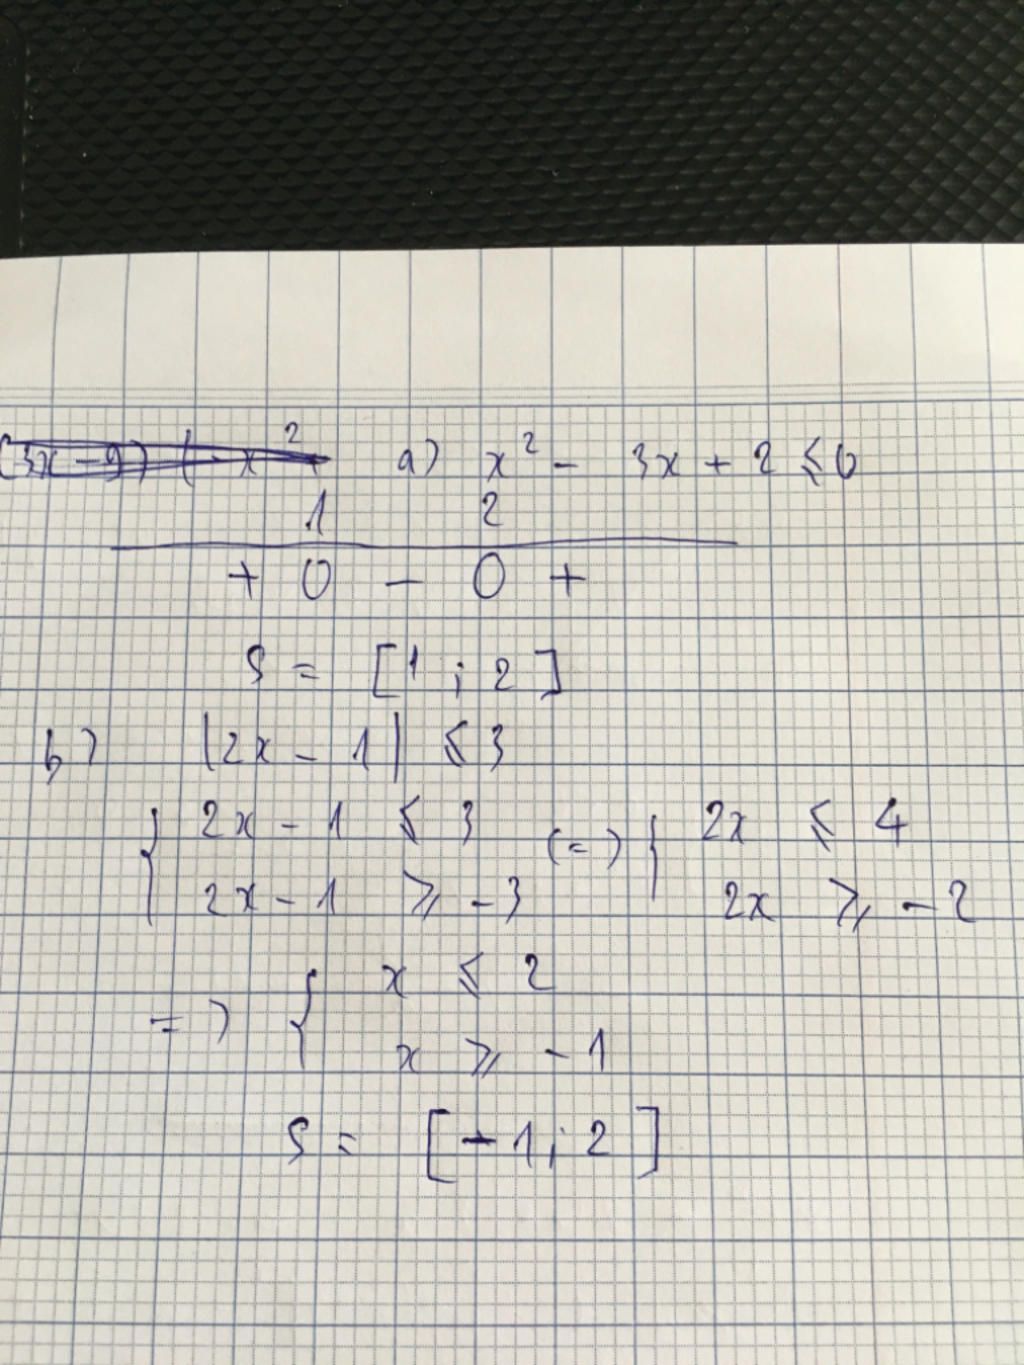 (3x-9) (-x² a) x² - 3x + 2 ≤ 0
1 2
+ 0 - 0 +
S = [1 ; 2]
b) |2x - 1| ≤ 3
{ 2x - 1 ≤ 3 (=) { 2x ≤ 4
2x - 1 ≥ -3 2x ≥ -2
=) { x ≤ 2
x ≥ -1
S = [-1 ; 2]